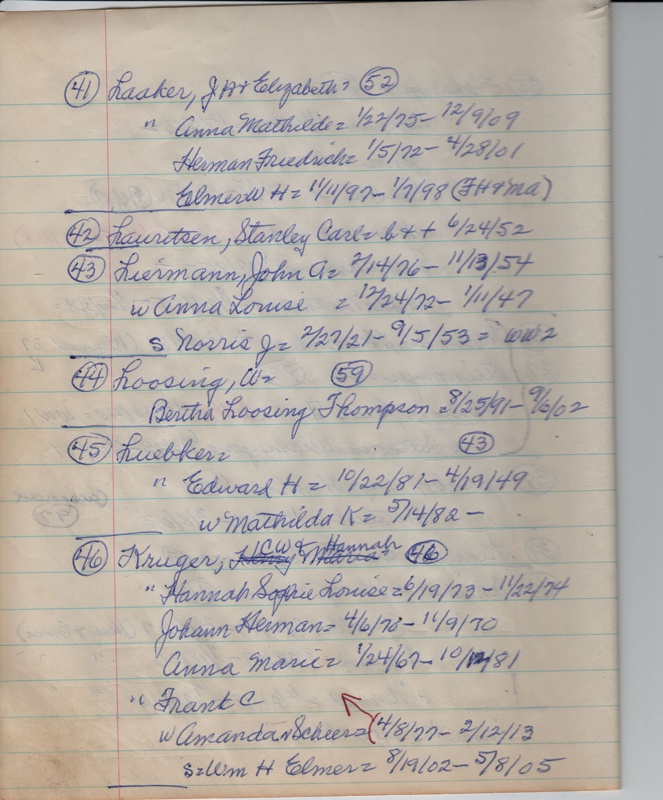 41 Laaker, J H & Elizabeth = 52
" Anna Mathilde = 1/22/75 - 12/9/09
Herman Friedrich = 1/5/72 - 4/28/01
Elmer W H = 11/11/97 - 1/7/98 (JH & ma)
42 Lauritsen, Stanley Carl = b & + 6/24/52
43 Liermann, John A = 2/14/76 - 11/13/54
w Anna Louise = 12/24/72 - 1/11/47
s Norris J = 2/27/21 - 9/5/53 = WW2
44 Loosing, W = 59
Bertha Loosing Thompson = 8/25/91 - 9/6/02
45 Luebker = 43
" Edward H = 10/22/81 - 4/19/49
w Mathilda K = 5/14/82 -
46 Kruger, HCW & Hannah 46
" Hannah Sophie Louise = 6/19/73 - 11/22/74
Johann Herman = 4/6/70 - 11/9/70
Anna Marie = 1/24/67 - 10/12/81
" Frank C
w Amanda Scheer = (4/8/77 - 2/12/13
s = Wm H Elmer = 8/19/02 - 5/8/05